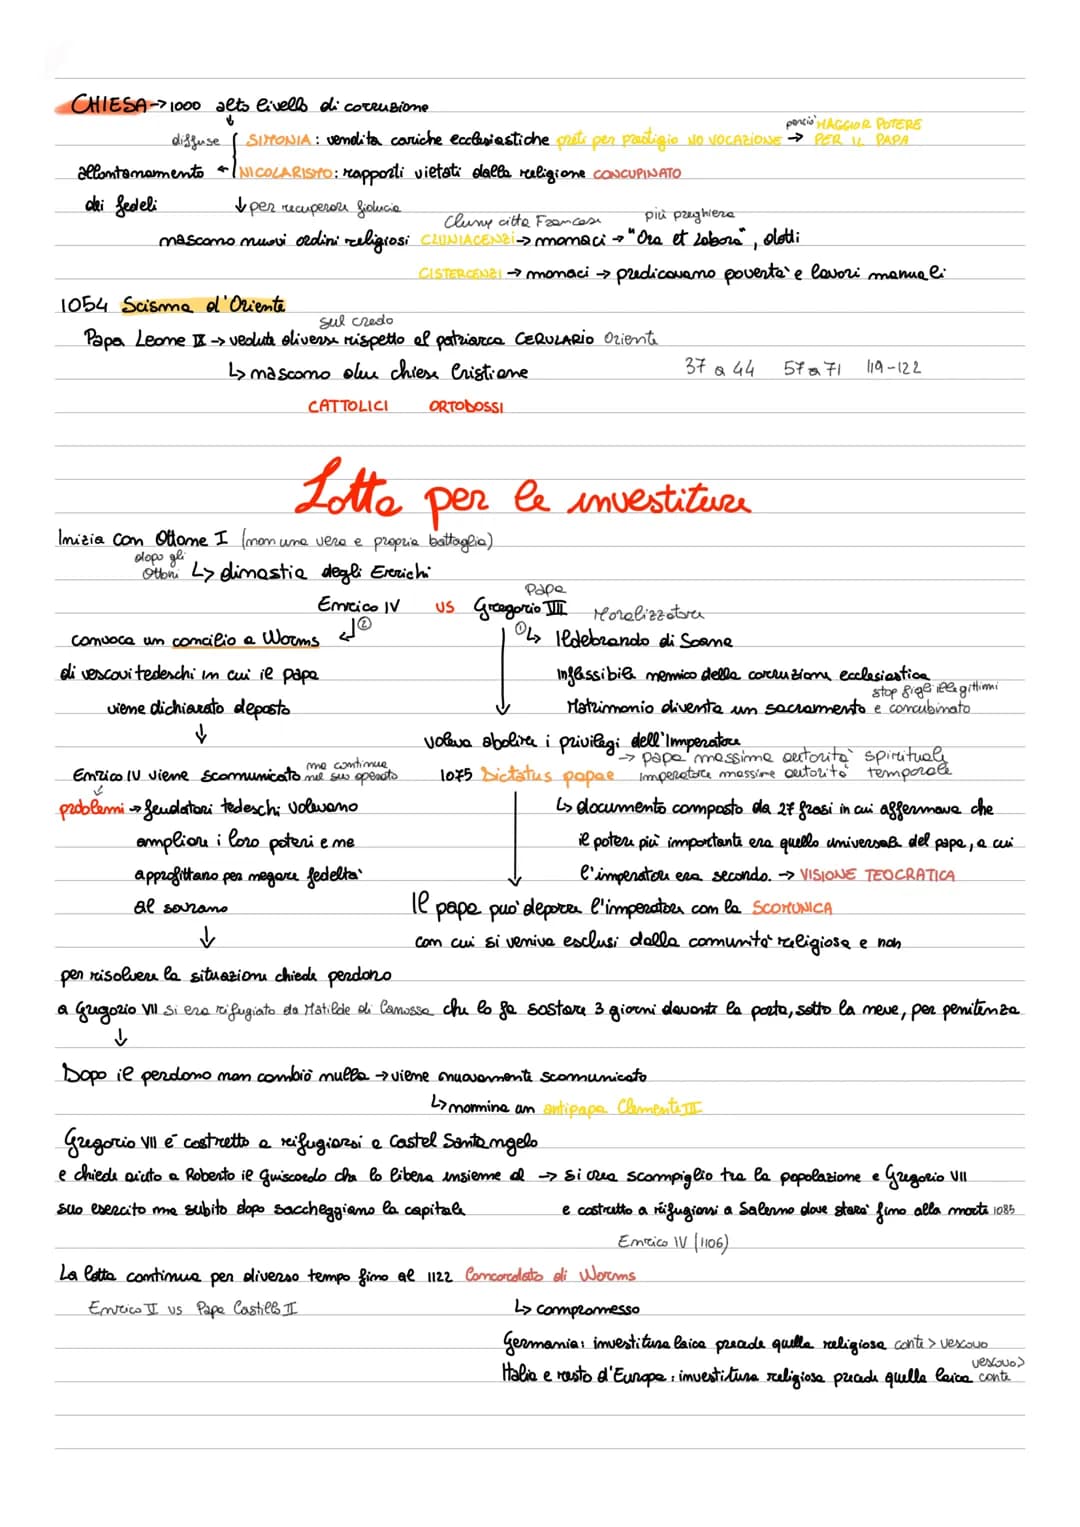 CHIESA → 1000 alto livello di corruzione
diffuse SIMONIA: vendita cariche ecclesiastiche preti per prestigio NO VOCAZIONE → perciò MAGGIOR POTERE PER IL PAPA
allontanamento ← NICOLARISMO: rapporti vietati dalla religione CONCUPINATO
dei fedeli ↓ per recuperare fiducia
Cluny città Francese più preghiera
nascono nuovi ordini religiosi CLUNIACENZI → monaci → "Ora et labora", dotti
CISTERCENZI → monaci → predicavano povertà e lavori manuali
1054 Scisma d'Oriente
sul credo
Papa Leone IX → vedute diverse rispetto al patriarca CERULARIO Oriente
↳ nascono due chiese Cristiane 37 a 44 57 a 71 119-122
CATTOLICI ORTODOSSI
Lotta per le investiture
Inizia con Ottone I (non una vera e propria battaglia)
dopo gli Ottoni ↳ dinastia degli Enrichi
Enrico IV vs Papa Gregorio VII Moralizzatore
② ① ↳ Ildebrando di Soana
convoca un concilio a Worms
di vescovi tedeschi in cui il papa
viene dichiarato deposto
Inflessibile nemico della corruzione ecclesiastica
Matrimonio diventa un sacramento stop figli illegittimi e concubinato
↓
voleva abolire i privilegi dell'Imperatore
→ papa massima autorità spirituale
imperatore massima autorità temporale
Enrico IV viene scomunicato ma continua nel suo operato
1075 Dictatus papae
problemi → feudatari tedeschi volevano
ampliare i loro poteri e ne
approfittano per negare fedeltà
al sovrano
↳ documento composto da 27 frasi in cui affermava che
il potere più importante era quello universale del papa, a cui
l'imperatore era secondo. → VISIONE TEOCRATICA
Il papa può deporre l'imperatore con la SCOMUNICA
con cui si veniva esclusi dalla comunità religiosa e non
↓
per risolvere la situazione chiede perdono
a Gregorio VII si era rifugiato da Matilde di Canossa che lo fa sostare 3 giorni davanti la porta, sotto la neve, per penitenza
↓
Dopo il perdono non cambiò nulla → viene nuovamente scomunicato
↳ nomina un antipapa Clemente III
Gregorio VII é costretto a rifugiarsi a Castel Santangelo
e chiede aiuto a Roberto il Guiscardo che lo libera insieme al → si crea scompiglio tra la popolazione e Gregorio VII
suo esercito ma subito dopo saccheggiano la capitale e costretto a rifugiarsi a Salerno dove starà fino alla morte 1085
Enrico IV (1106)
La lotta continua per diverso tempo fino al 1122 Concordato di Worms
Enrico V vs Papa Castillo II ↳ compromesso
Germania: investitura laica precede quella religiosa conte > vescovo
Italia e resto d'Europa: investitura religiosa precede quella laica vescovo > conte